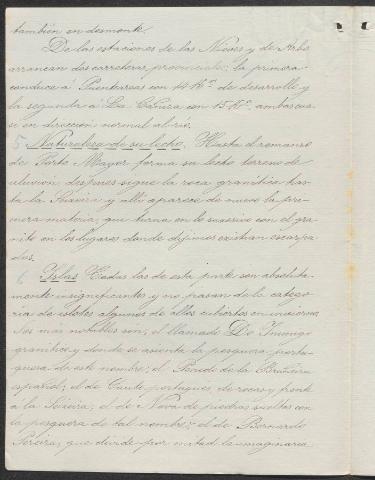 también en desmonte.
De las estaciones de las Nieves y de Arbo
arrancan dos carreteras provinciales; la primera
conduce á Puenteareas con 14 K.m de desarrollo y
la segunda á La Cañiza con 15 K.m ambas cua-
se en dirección normal al río.
5 Naturaleza de su lecho. Hasta el remanso
de Porto Mayor forma su lecho terreno de
aluvion despues sigue la roca granítica has-
ta la y alli aparece de nuevo la pri-
mera materia, que turna en lo sucesivo con el gra-
nito en los lugares donde dijimos existian escarpa-
dos.
6 Yslas Todas las de esta parte son absoluta-
mente insignificantes y no pasan de la catego-
ria de islotes algunos de ellos cubiertos en invierno
Los más notables son; el llamado Do
granítico y donde se asienta la pesquera portu-
guesa de este nombre; el Penedo de la
español; el de portugues de rocas y frente
á la el de Nova de piedras sueltas con
la pesquera de tal nombre; el de Bernardo
Pereira, que divide por mitad la imaginaria